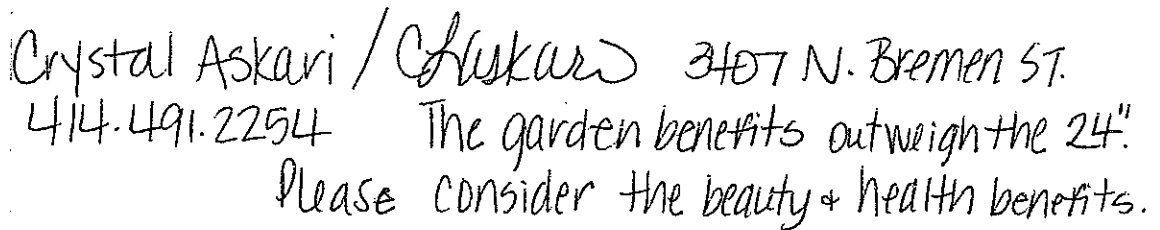 Crystal Askari / CAskari 3407 N. Bremen ST.
414.491.2254 The garden benefits outweigh the 24".
Please consider the beauty + health benefits.